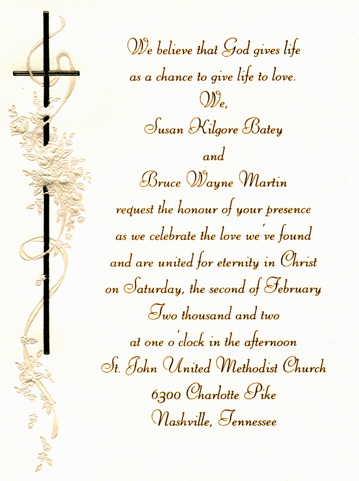 We believe that God gives life
as a chance to give life to love.
We,
Susan Kilgore Batey
and
Bruce Wayne Martin
request the honour of your presence
as we celebrate the love we've found
and are united for eternity in Christ
on Saturday, the second of February
Two thousand and two
at one o'clock in the afternoon
St. John United Methodist Church
6300 Charlotte Pike
Nashville, Tennessee